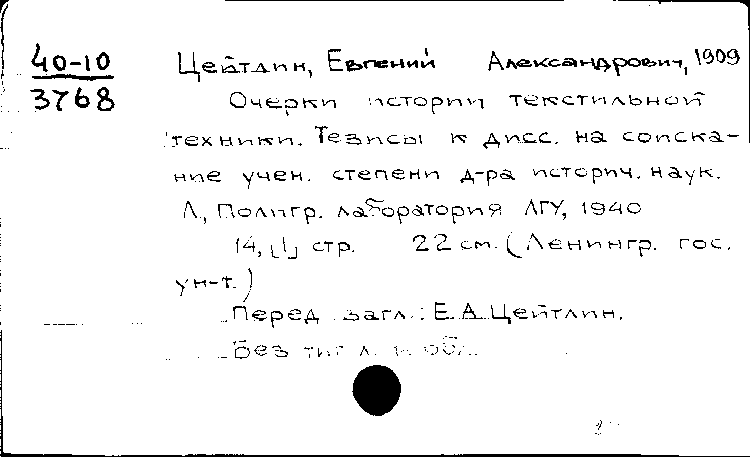 40-10
3768
Цейтлин, Евгений Александрович, 1909
Очерки истории текстильной
техники. Тезисы к дисс. на соиска-
ние учен. степени д-ра историч. наук.
Л., Полигр. лаборатория ЛГУ, 1940
14, [1] стр. 22 см. (Ленингр. гос.
ун-т.)
Перед загл.: Е.А. Цейтлин.
Без тит. л. и обл.